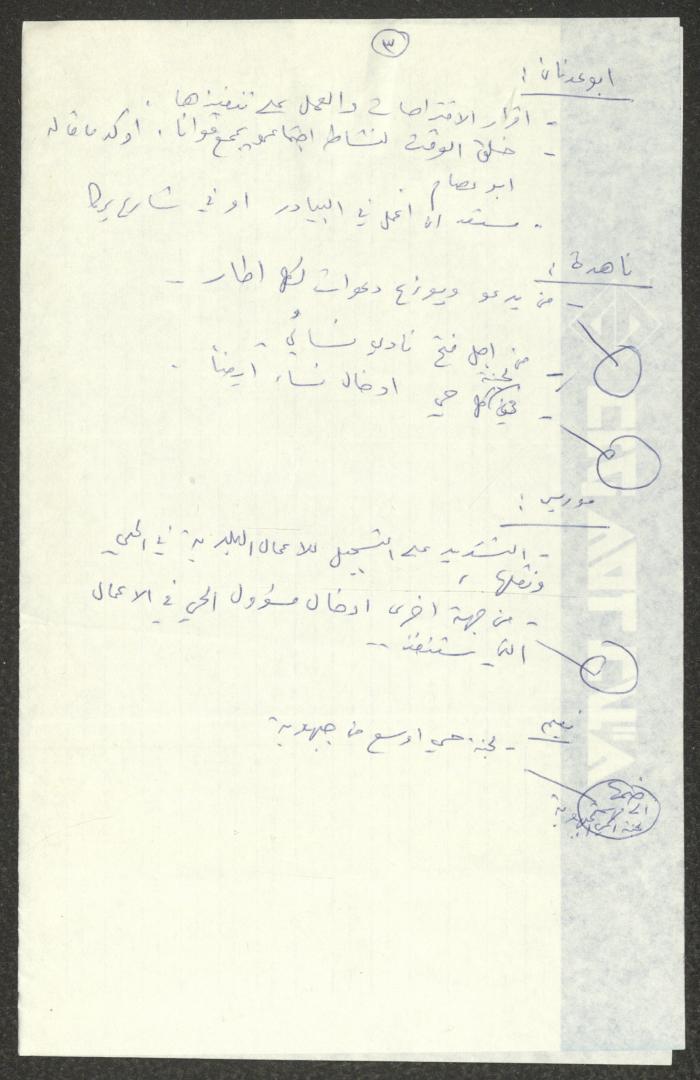 ٣
ابو عدنان :
- اقرار الاقتراحات والعمل على تنفيذها .
- خلق الوقت لنشاط اجتماعي يجمع قوانا . أوكد ما قاله
ابو عصام
- مستعد ان أعمل في البيادر او في شارع يركا
ناهدة :
- من يدعو ويوزع دعوات لكل اطار -
- من اجل فتح نادي نسائي -
- في لجنة كل حي ادخال نساء ايضاً .
موريس :
- التشديد على التسجيل للاعمال البلدية في الحي
ونقلها ،
- من جهة اخرى ادخال مسؤول الحي في الاعمال
التي ستنفذ --
نعيم
- لجنة حي اوسع من جبهوية
ضمها
الى
لجنة الحي الجبهوية